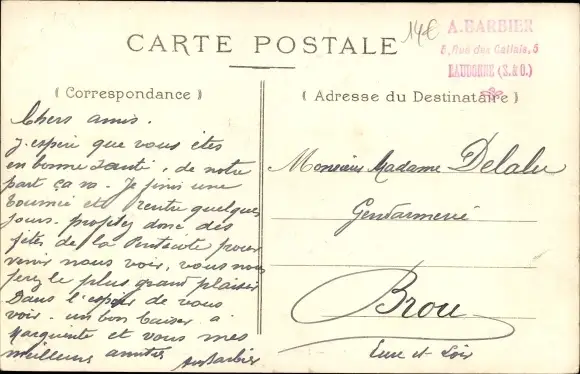 14€
A. BARBIER
5, Rue des Callais, 5
BAUBONNE (S.&O.)
CARTE POSTALE
( Correspondance )
( Adresse du Destinataire )
Chers amis.
J'espère que vous êtes
en bonne santé, de notre
part ça va. Je finis une
tournée et rentre quelques
jours. profitez donc des
fêtes de la Pentecôte pour
venir nous voir, vous nous
ferez le plus grand plaisir
Dans l'espoir de vous
voir. un bon baiser à
Marguerite et vous mes
meilleurs amitiés
Barbier
Monsieur Madame Delalu
Gendarmerie
Brou
Eure et Loir